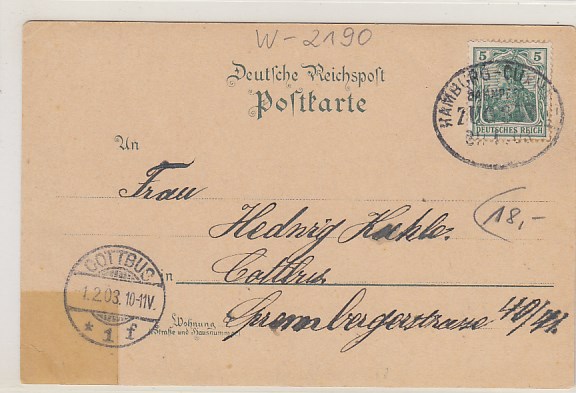 W-2190
5 5
Deutsche Reichspost
Postkarte
HAMBURG-CUX
BAHNPOST
DEUTSCHES REICH
An
Frau
Hedwig
18,-
COTTBUS
1.2.03. 10-11V.
* 1 f
in Cottbus
Wohnung
(Straße und Hausnummer)
Sprembergerstrasse 40/41.